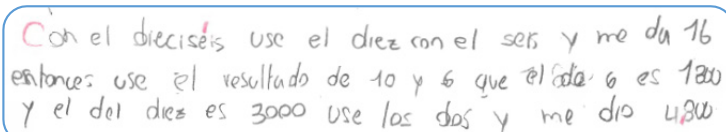 Con el dieciséis use el diez con el seis y me da 16
entonces use el resultado de 10 y 6 que el de 6 es 1800
y el del diez es 3000 use los dos y me dio 4,800